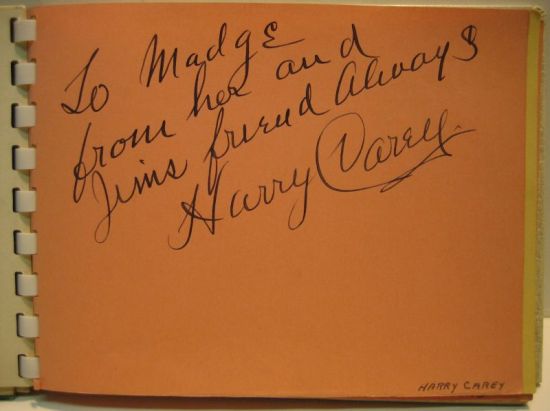 To Madge
from her and
Jims friend Always
Harry Carey.
HARRY CAREY